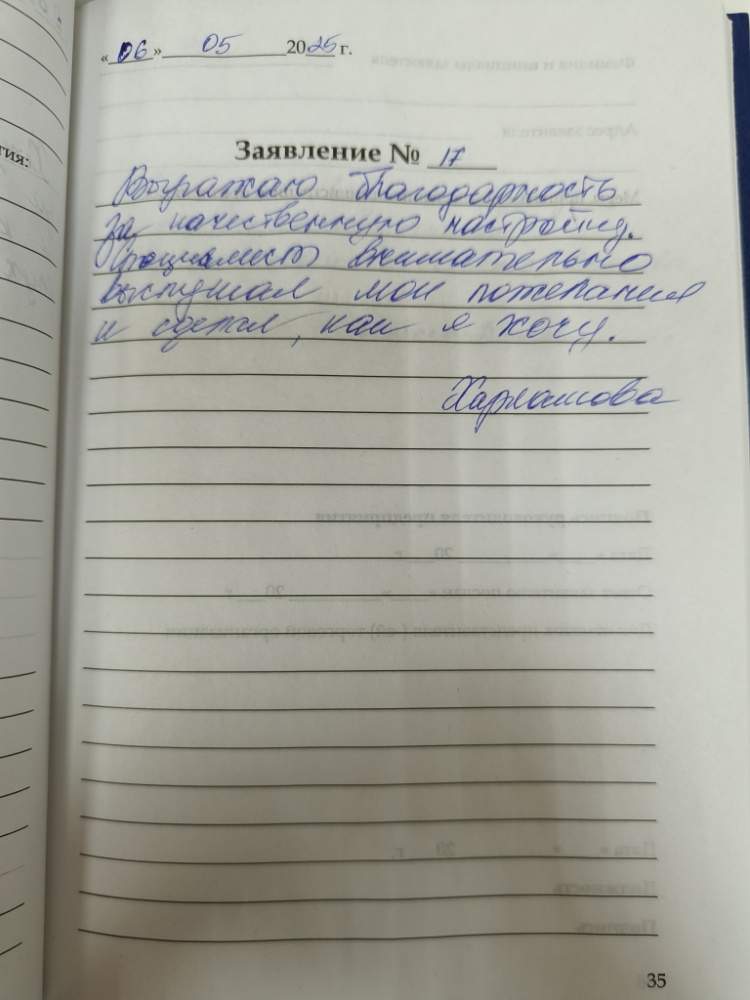 тия:
«06» 05 2025 г.
Заявление № 17
Выражаю благодарность
за качественную настройку.
Специалист внимательно
выслушал мои пожелания
и сделал, как я хочу.
35